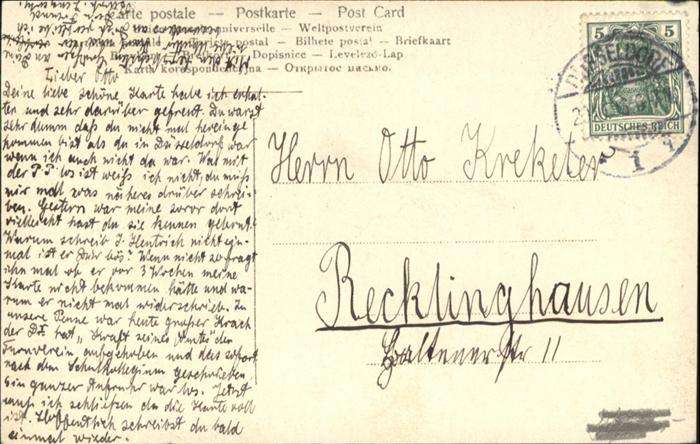 Carte postale — Postkarte — Post Card
universelle — Weltpostverein
postal — Bilhete postal — Briefkaart
Dopisnice — Levelező-Lap
Karta korespondencyjna — Открытое письмо.
DÜSSELDORF
5 5
DEUTSCHES REICH
Lieber Otto
Deine liebe schöne Karte habe ich erhal-
ten und sehr darüber gefreut. Du warst
sehr dumm daß du nicht mal hereinge
kommen bist als du in Düsseldorf war
wenn ich auch nicht da war. Was mit
der P.P. los ist weiß ich nicht, du müß
mir mal was näheres drüber schrei-
ben. Gestern war meine soror dort
vielleicht hast du sie kennen gelernt.
Warum schreib J. Hentrich nicht ein-
mal ist er Düür bös? Wenn nicht so fragt
ihn mal ob er vor 3 Wochen meine
Karte nicht bekommen hätte und wa-
rum er nicht mal widerschrieb. In
unsere Penne war heute großer Krach
der DX hat "Kraft seines Amtes" den
Turnverein aufgehoben und das sofort
nach dem Schulkollegium geschrieben
Ein ganzer Aufruhr war los. Jetzt
muß ich schließen da die Karte voll
ist. Hoffentlich schreibst du bald
einmal wieder.
Herrn Otto Kreketer
Recklinghausen
Haltenerstr 11